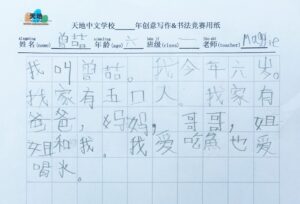 天地
天地中文学校____年创意写作&书法竞赛用纸
xìngmíng niánlíng bānjí lǎoshī
姓名(name) 曾喆 年龄(age) 六 班级(class) 一 老师(teacher) Maggie
我叫曾喆。我今年六岁。
我家有五口人。我家有
爸爸，妈妈，哥哥，姐
姐和我。我爱吃魚也爱
喝水。